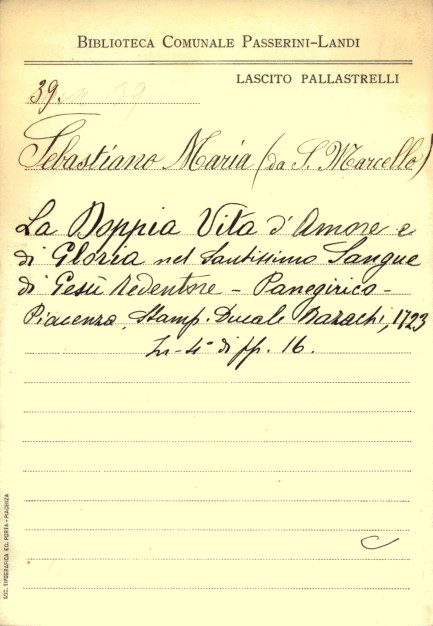 BIBLIOTECA COMUNALE PASSERINI-LANDI
LASCITO PALLASTRELLI
39.
Sebastiano Maria (da S. Marcello)
La Doppia Vita d'Amore e
di Gloria nel Santissimo Sangue
di Gesù Redentore - Panegirico -
Piacenza, Stamp. Ducale Bazachi, 1723
In-4° di pp. 16.
SOC. TIPOGRAFICA ED. PORTA - PIACENZA